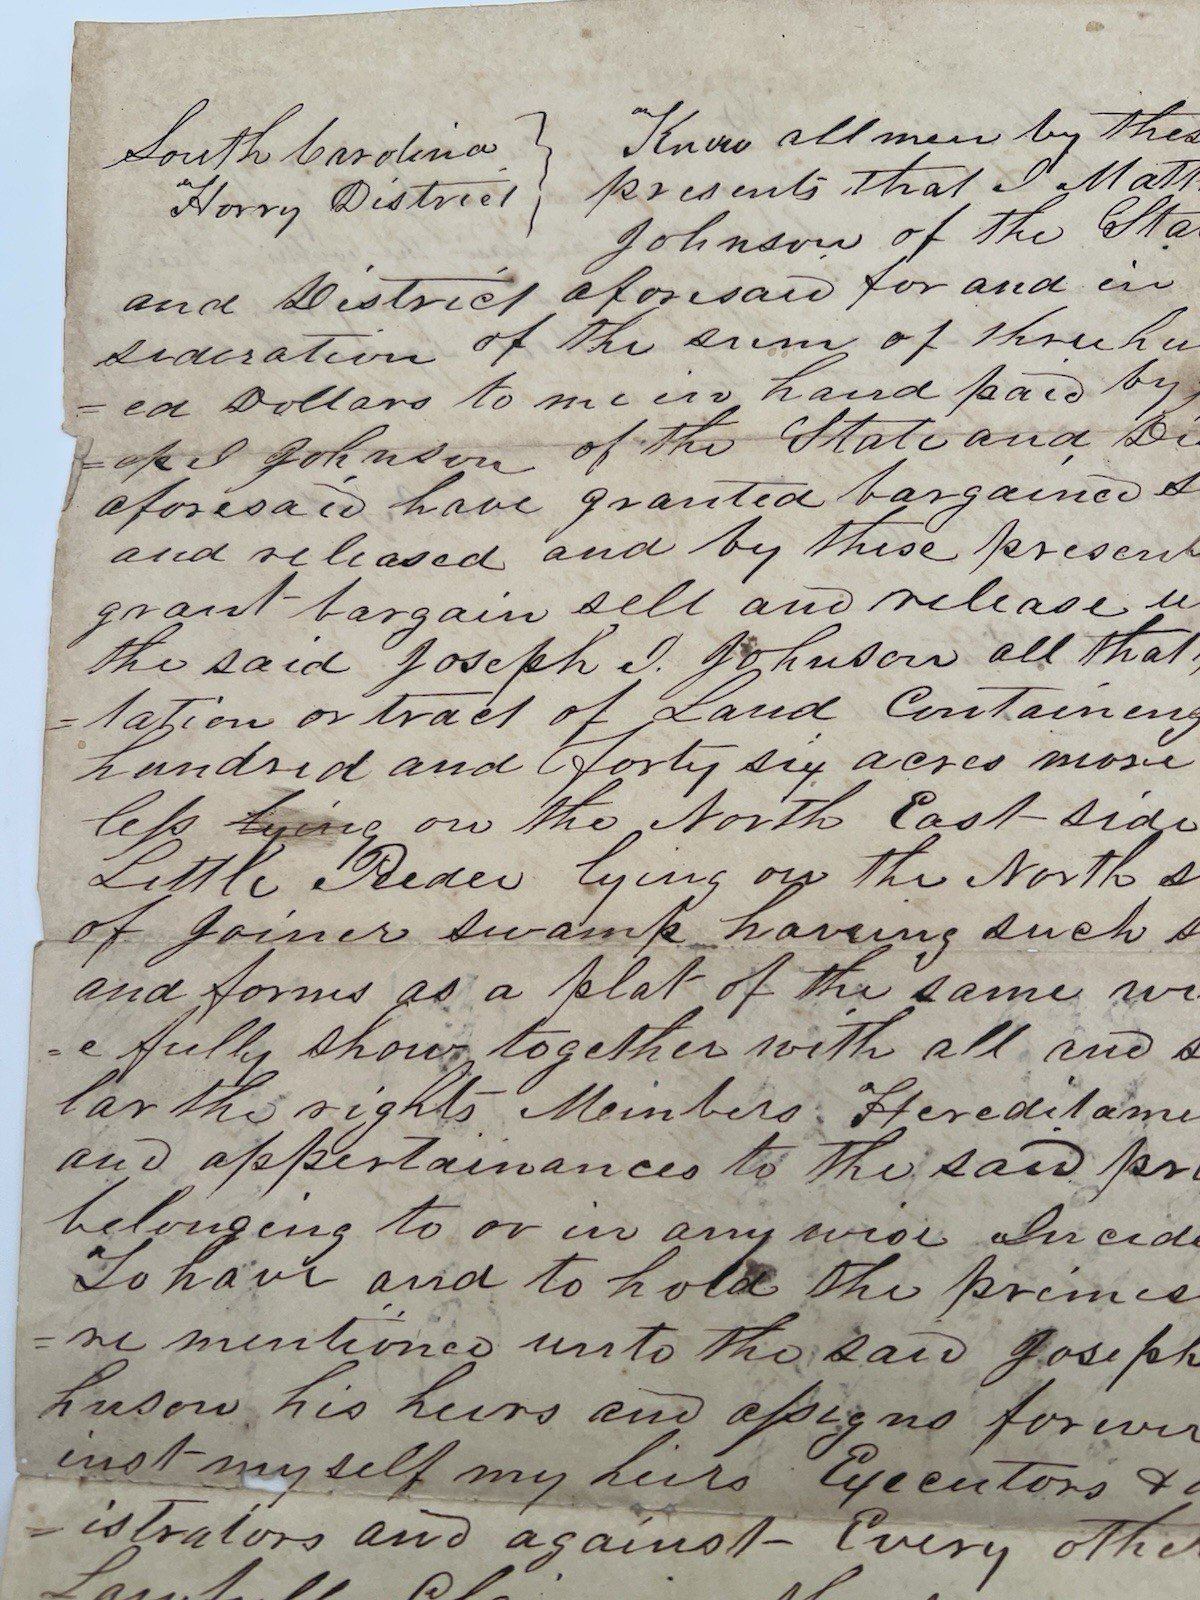 South Carolina } Know all men by thes
Horry District } presents that I Matt
Johnson of the Sta
and District aforesaid for and in
sideration of the sum of three hu
=ed Dollars to me in hand paid by
=eph I Johnson of the State and Di
aforesaid have granted bargained s
and released and by these present
grant bargain sell and release u
the said Joseph I. Johnson all that
=tation or tract of Land Containeng
hundred and forty six acres more
less lying on the North East side
Little Pedee lying on the North s
of Joiner swamp having such s
and forms as a plat of the same wi
=e fully show together with all and s
lar the rights Meinbers Hereditame
and appertainances to the said pr
belonging to or in any wise Incide
To have and to hold the primis
=re mentioned unto the said Joseph
hnson his heirs and assigns forever
inst myself my heirs Executors & a
=istrators and against Every othe
Lawfull